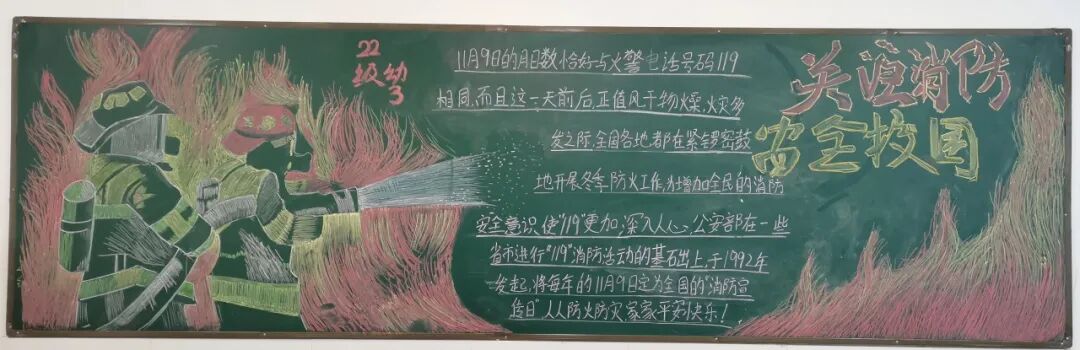 22
级幼
3
11月9日的月日数恰好与火警电话号码119
相同,而且这一天前后,正值风干物燥、火灾多
发之际,全国各地都在紧锣密鼓
地开展冬季防火工作,为增加全民的消防
安全意识,使"119"更加深入人心,公安部在一些
省市进行"119"消防活动的基石出上,于1992年
发起,将每年的11月9日定为全国的"消防宣
传日"人人防火防灾家家平安快乐!
关注消防
安全校园